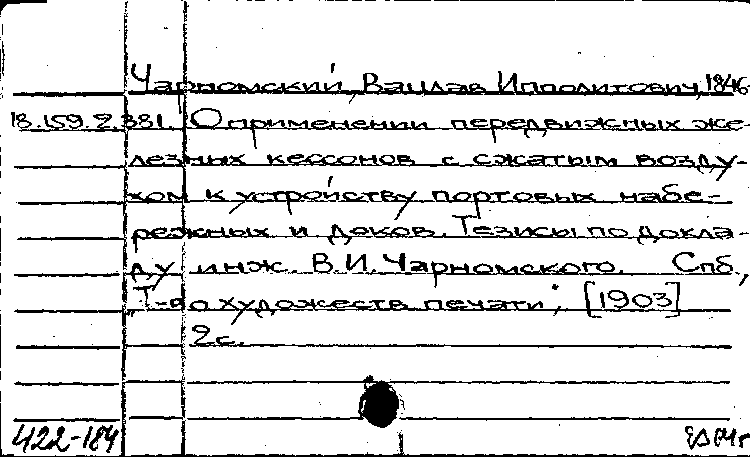 Чарномский, Вацлав Ипполитович, 1846-
18.159.2.381. О применении передвижных же-
лезных кессонов с сжатым возду-
хом к устройству портовых набе-
режных и доков. Тезисы по докла-
ду инж. В.И. Чарномского. Спб.,
"Т-во художеств. печати", [1903]
2с.
422-184